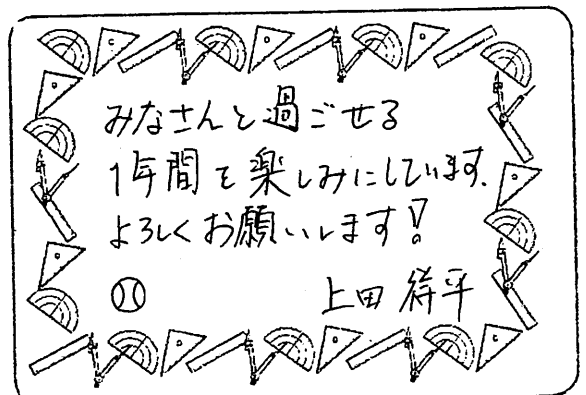 みなさんと過ごせる
1年間を楽しみにしています.
よろしくお願いします!
上田 祥平